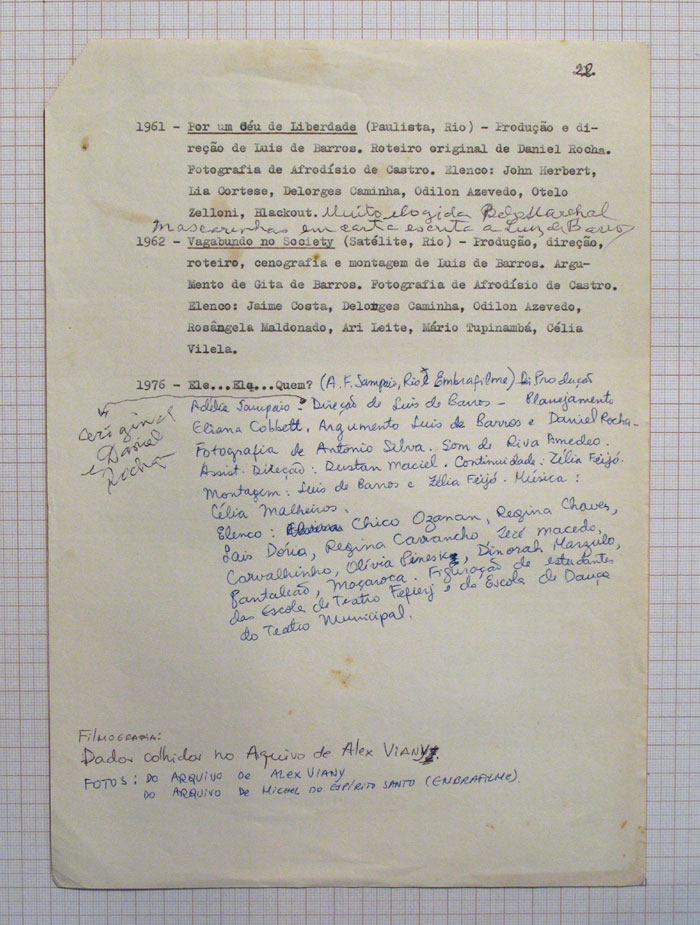 22.
1961 - Por um Céu de Liberdade (Paulista, Rio) - Produção e di-
reção de Luis de Barros. Roteiro original de Daniel Rocha.
Fotografia de Afrodísio de Castro. Elenco: John Herbert,
Lia Cortese, Delorges Caminha, Odilon Azevedo, Otelo
Zelloni, Blackout. Muito elogida Pelo Marechal
Mascarenhas em carta escrita a Luiz de Barros
1962 - Vagabundo no Society (Satélite, Rio) - Produção, direção,
roteiro, cenografia e montagem de Luis de Barros. Argu-
mento de Gita de Barros. Fotografia de Afrodísio de Castro.
Elenco: Jaime Costa, Delorges Caminha, Odilon Azevedo,
Rosângela Maldonado, Ari Leite, Mário Tupinambá, Célia
Vilela.
1976 - Ele...Ela...Quem? (A.F. Sampaio, Rio e Embrafilme) Produção
Adélia Sampaio. Direção de Luis de Barros - Planejamento
Eliana Cobbett. Argumento Luis de Barros e Daniel Rocha -
original
Daniel
Rocha
Fotografia de Antonio Silva. Som de Riva Amedeo.
Assist. Direção: Dustan Maciel. Continuidade: Zélia Feijó.
Montagem: Luis de Barros e Zélia Feijó. Música:
Célia Malheiros.
Elenco: Chico Ozanan, Regina Chaves,
Lais Dória, Regina Carrancho, Zezé Macedo,
Carvalhinho, Olívia Pineschi, Dinorah Marzulo,
Pantaleão, Maçaroca. Figuração de estudantes
das Escola de Teatro Fefierj e da Escola de Dança
do Teatro Municipal.
FILMOGRAFIA:
Dados colhidos no Arquivo de Alex VIANY.
FOTOS: DO ARQUIVO DE ALEX VIANY
DO ARQUIVO DE MICHEL DO ESPÍRITO SANTO (EMBRAFILME).